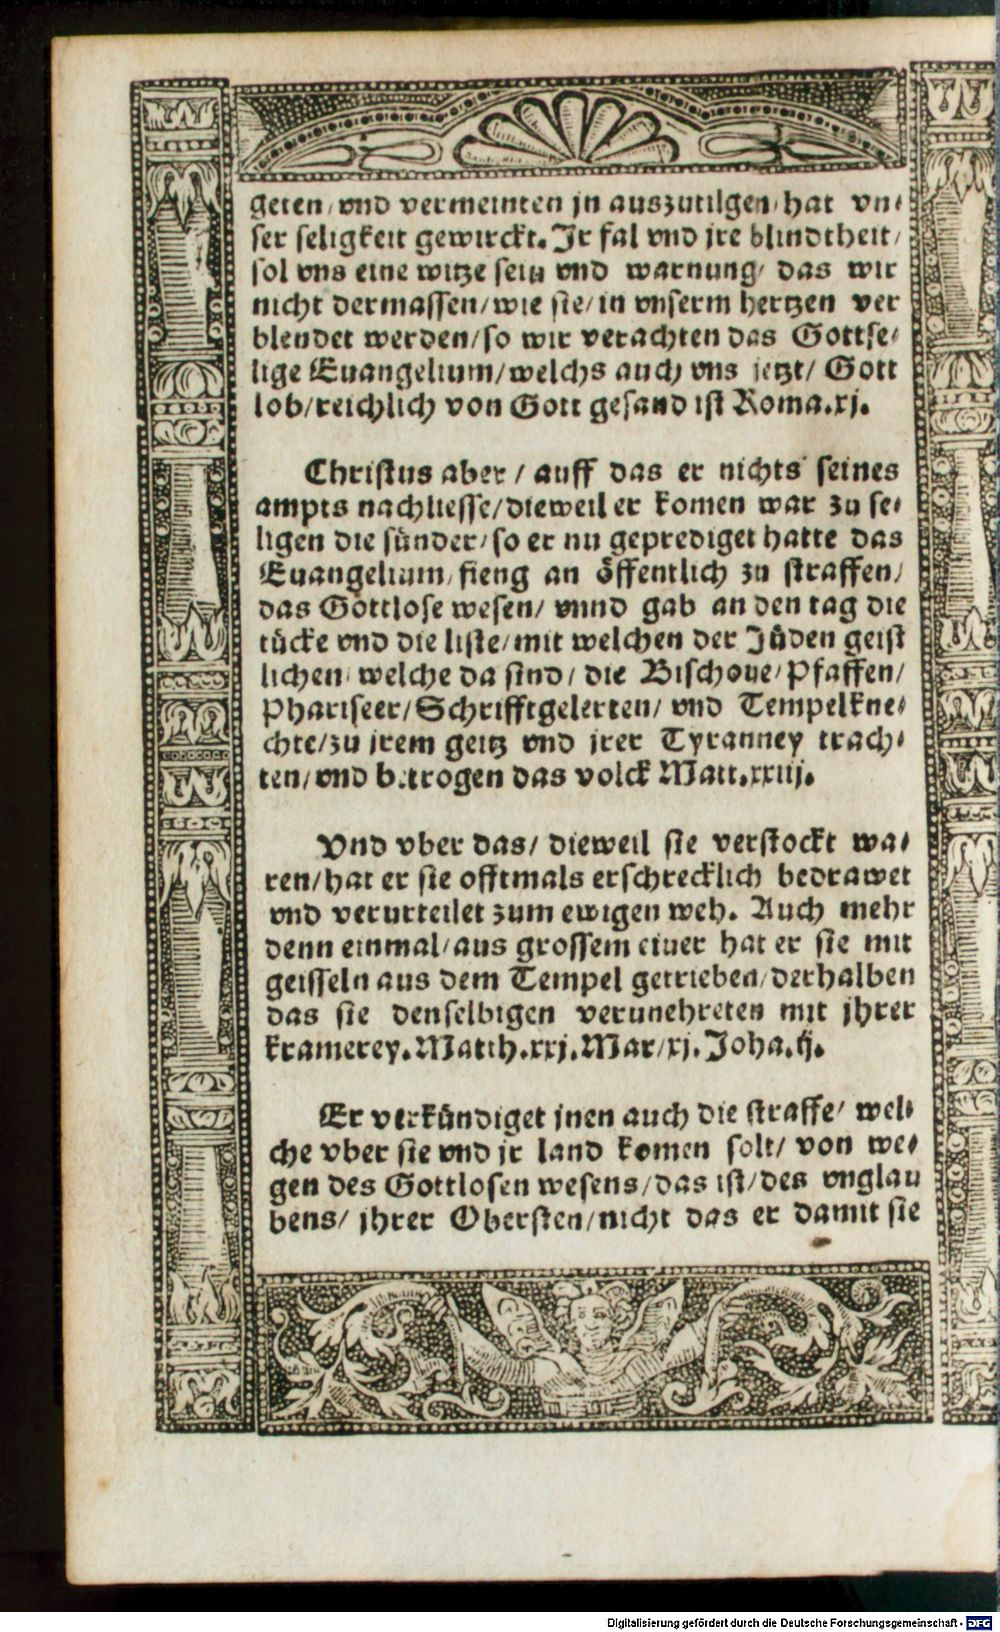 geten/ vnd vermeinten jn auszutilgen/ hat vn⸗
ser seligkeit gewirckt. Jr fal vnd jre blindtheit/
sol vns eine witze sein vnd warnung/ das wir
nicht dermassen/ wie sie/ in vnserm hertzen ver
blendet werden/ so wir verachten das Gottse⸗
lige Euangelium/ welchs auch vns jetzt/ Gott
lob/ reichlich von Gott gesand ist Roma.xj.
Christus aber/ auff das er nichts seines
ampts nachliesse/ dieweil er komen war zu se⸗
ligen die sünder/ so er nu geprediget hatte das
Euangelium/ fieng an öffentlich zu straffen/
das Gottlose wesen/ vnnd gab an den tag die
tücke vnd die liste/ mit welchen der Jüden geist
lichen/ welche da sind/ die Bischoue/ Pfaffen/
Phariseer/ Schrifftgelerten/ vnd Tempelkne⸗
chte/ zu jrem geitz vnd jrer Tyranney trach⸗
ten/ vnd betrogen das volck Matt.xxiij.
Vnd vber das/ dieweil sie verstockt wa⸗
ren/ hat er sie offtmals erschrecklich bedrawet
vnd verurteilet zum ewigen weh. Auch mehr
denn einmal/ aus grossem eiuer hat er sie mit
geisseln aus dem Tempel getrieben/ derhalben
das sie denselbigen verunehreten mit jhrer
kramerey. Matth.xxj. Mar/xj. Joha.ij.
Er verkündiget jnen auch die straffe/ wel⸗
che vber sie vnd jr land komen solt/ von we⸗
gen des Gottlosen wesens/ das ist/ des vnglau
bens/ jhrer Obersten/ nicht das er damit sie
Digitalisierung gefördert durch die Deutsche Forschungsgemeinschaft - DFG